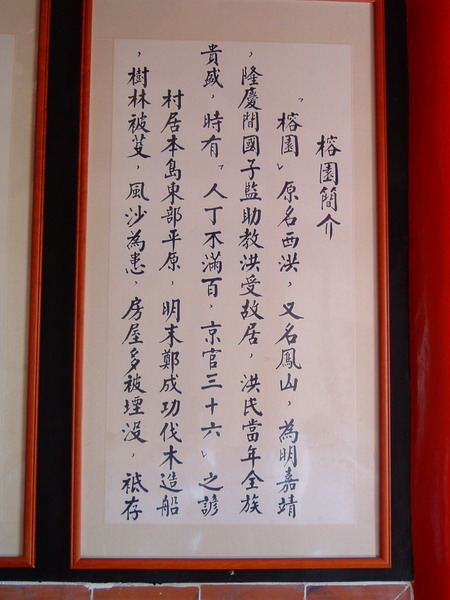 榕園簡介
「榕園」原名西洪，又名鳳山，為明嘉靖
，隆慶間國子監助教洪受故居，洪氏當年全族
貴盛，時有「人丁不滿百，京官三十六」之諺
村居本島東部平原，明末鄭成功伐木造船
，樹林被芟，風沙為患，房屋多被堙沒，祗存